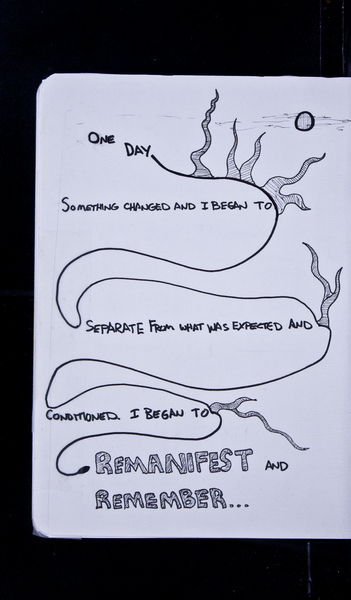 One
Day
Something changed and I began to
separate from what was expected and
conditioned. I began to
REMANIFEST and
REMEMBER...